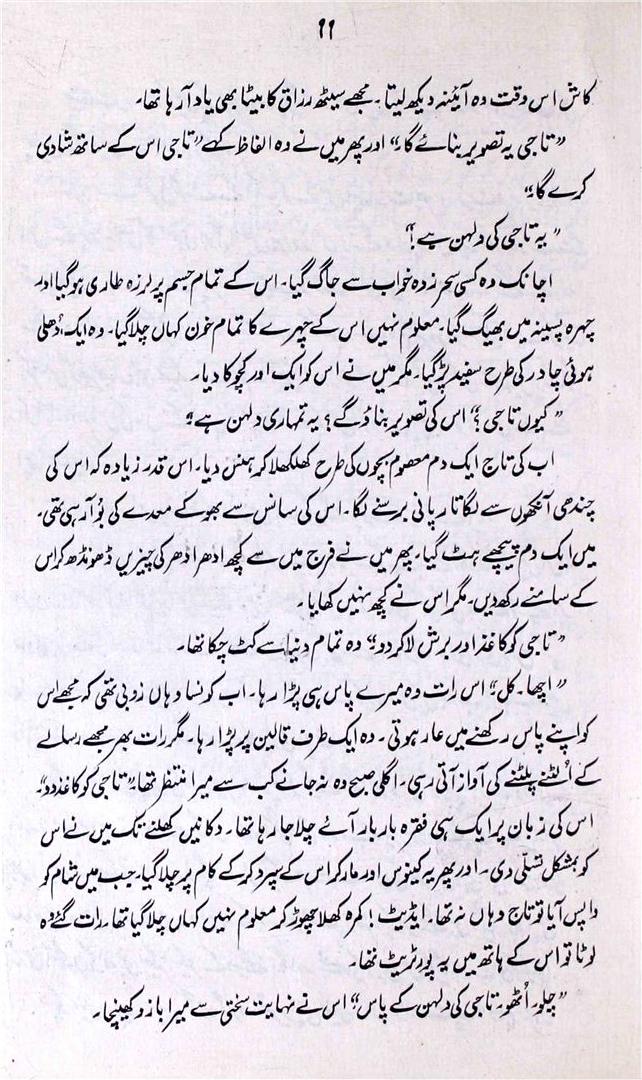 ۶۶
کاش اس وقت وہ آئینہ دیکھ لیتا۔ مجھے سیٹھ رزاق کا بیٹا بھی یاد آ رہا تھا۔
”تاجی یہ تصویر بنائے گا؟“ اور پھر میں نے وہ الفاظ کہے ”تاجی اس کے ساتھ شادی
کرے گا؟“
”یہ تاجی کی دلہن ہے؟“
اچانک وہ کسی سحر زدہ خواب سے جاگ گیا۔ اس کے تمام جسم پر لرزہ طاری ہو گیا اور
چہرہ پسینہ میں بھیگ گیا۔ معلوم نہیں اس کے چہرے کا تمام خون کہاں چلا گیا۔ وہ ایک دُھلی
ہوئی چادر کی طرح سفید پڑ گیا۔ مگر میں نے اس کو ایک اور کچوکا دیا۔
”کیوں تاجی؟“ اس کی تصویر بناؤ گے؟ یہ تمہاری دلہن ہے؟
اب کی تاج ایک دم معصوم بچوں کی طرح کھلکھلا کر ہنس دیا۔ اس قدر زیادہ کہ اس کی
چندھی آنکھوں سے لگاتار پانی برسنے لگا۔ اس کی سانس سے بھوکے معدے کی بُو آ رہی تھی۔
میں ایک دم پیچھے ہٹ گیا۔ پھر میں نے فرج میں سے کچھ ادھر ادھر کی چیزیں ڈھونڈھ کر اس
کے سامنے رکھ دیں۔ مگر اس نے کچھ نہیں کھایا۔
”تاجی کو کاغذ اور برش لا کر دو؟“ وہ تمام دنیا سے کٹ چکا تھا۔
”اچھا۔ کل؟“ اس رات وہ میرے پاس ہی پڑا رہا۔ اب کونسا وہاں زوبی تھی کہ مجھے اس
کو اپنے پاس رکھنے میں عار ہوتی۔ وہ ایک طرف قالین پر پڑا رہا۔ مگر رات بھر مجھے رسالے
کے اُلٹنے پلٹنے کی آواز آتی رہی۔ اگلی صبح وہ نہ جانے کب سے میرا منتظر تھا؟ ”تاجی کو کاغذ دو“۔
اس کی زبان پر ایک ہی فقرہ بار بار آئے چلا جا رہا تھا۔ دکانیں کھلنے تک میں نے اس
کو بمشکل تسلّی دی۔ اور پھر یہ کینوس اور مارکر اس کے سپرد کر کے کام پر چلا گیا۔ جب میں شام کو
واپس آیا تو تاج وہاں نہ تھا۔ ایڈیٹ! کمرہ کھلا چھوڑ کر معلوم نہیں کہاں چلا گیا تھا۔ رات گئے وہ
لوٹا تو اس کے ہاتھ میں یہ پورٹریٹ تھا۔
”چلو۔ اُٹھو۔ تاجی کی دلہن کے پاس“ اس نے نہایت سختی سے میرا بازو کھینچا۔